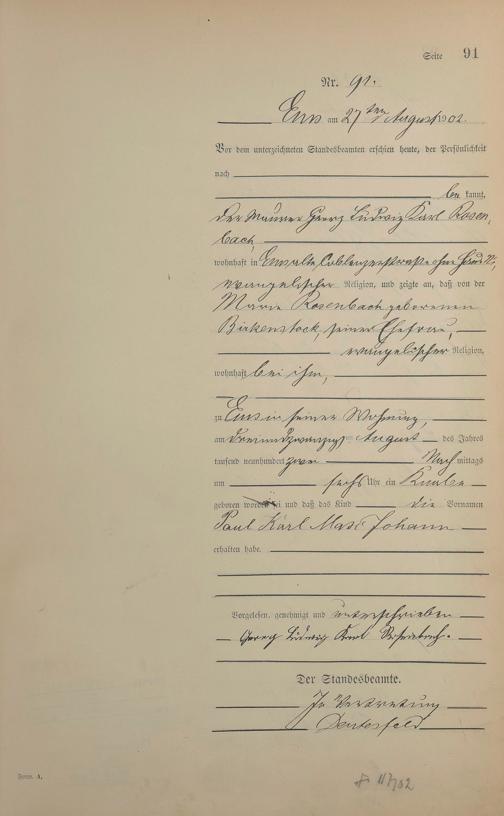 Seite 91
Nr. 91.
Ems am 27ten August 1902.
Vor dem unterzeichneten Standesbeamten erschien heute, der Persönlichkeit
nach
be kannt,
der Maurer Georg Ludwig Karl Rosen,
bach,
wohnhaft in Ems alte Coblenzerstraße ohne Haus N.,
evangelischer Religion, und zeigte an, daß von der
Marie Rosenbach geborenen
Birkenstock, seiner Ehefrau,
evangelischer Religion,
wohnhaft bei ihm,
zu Ems in seiner Wohnung,
am dreiundzwanzigsten August des Jahres
tausend neunhundert zwei Nach mittags
um sechs Uhr ein Knabe
geboren worden sei und daß das Kind die Vornamen
Paul Karl Max Johann
erhalten habe.
Vorgelesen, genehmigt und unterschrieben
Georg Ludwig Karl Rosenbach.
Der Standesbeamte.
In Vertretung
Form. A.